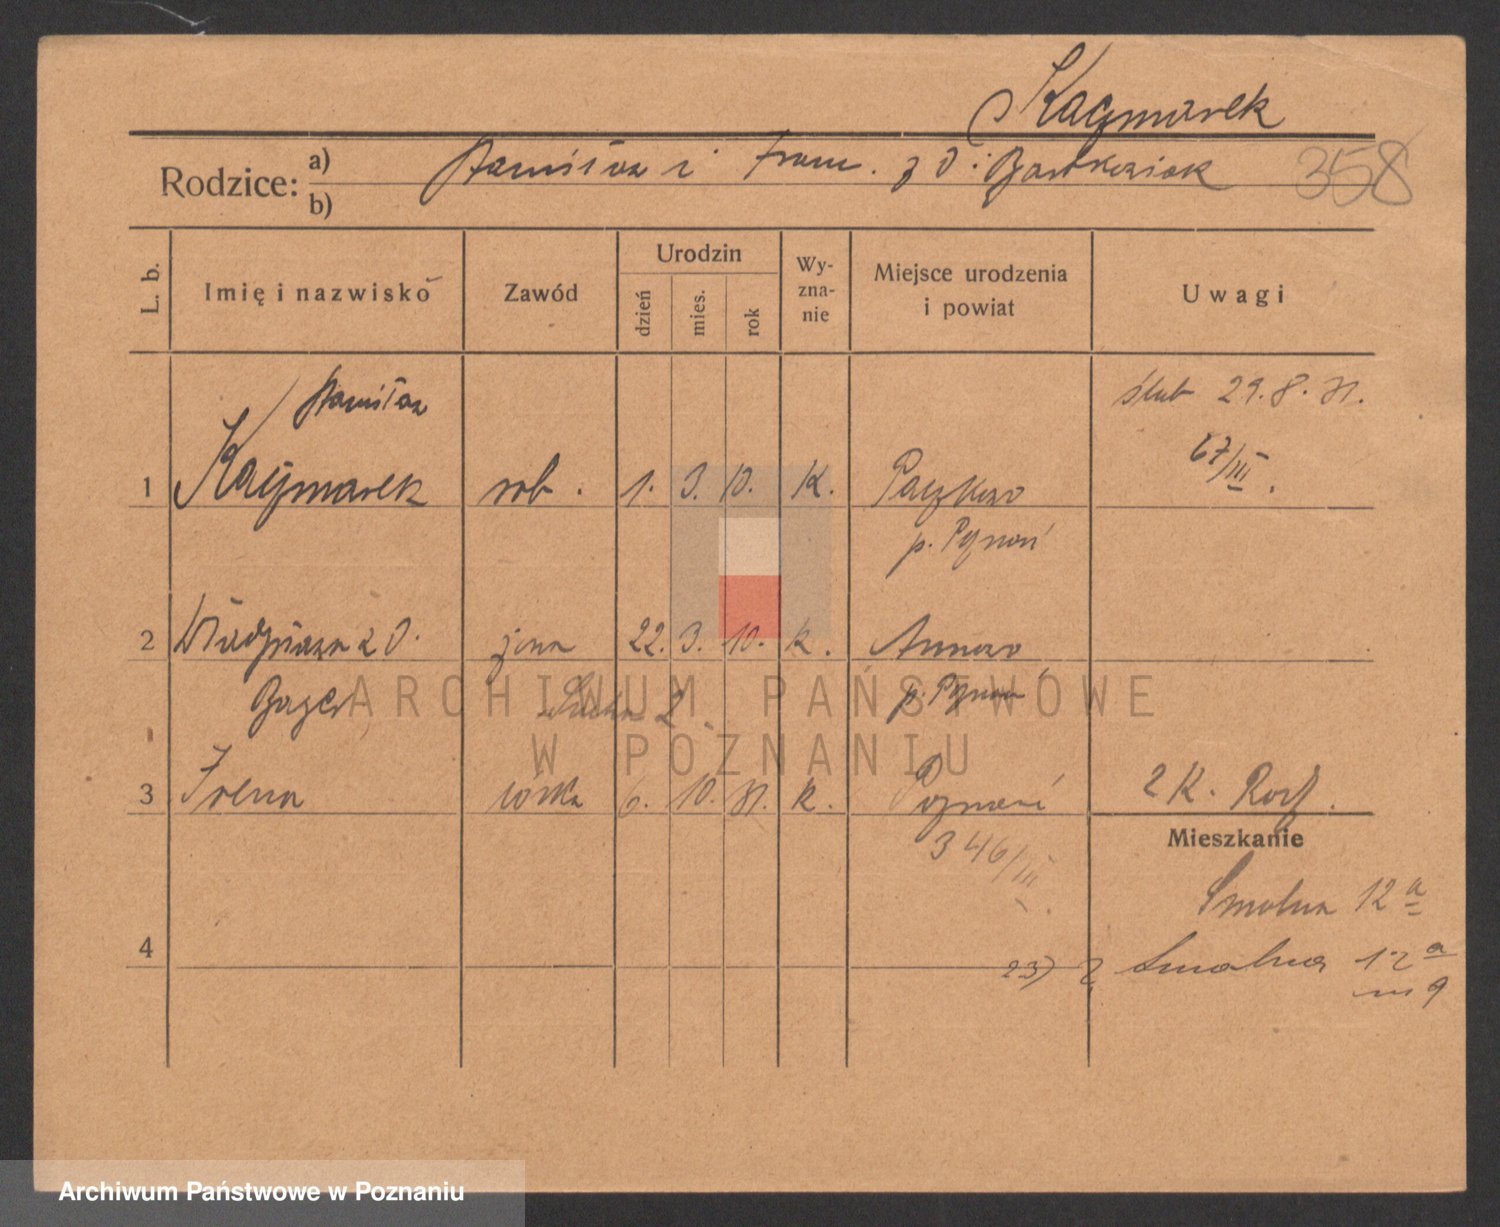 Kaczmarek
Rodzice: a) Stanisław i Fran. z d. Bartkowiak 358
b)
L. b. Imię i nazwisko Zawód Urodzin dzień mies. rok Wy-zna-nie Miejsce urodzenia i powiat Uwagi
Stanisław ślub 29. 8. 31.
67/III.
1 Kaczmarek rob. 1. 3. 10. K. Paczkowo
p. Poznań
2 z d. żona 22. 3. 10. k.
p. Poznań
3 Irena córka 6. 10. 31. k. Poznań 2 K.
346/III
Mieszkanie
Smolna 12 a
4
23) Smolna 12 a
m 9
ARCHIWUM PAŃSTWOWE
W POZNANIU
Archiwum Państwowe w Poznaniu